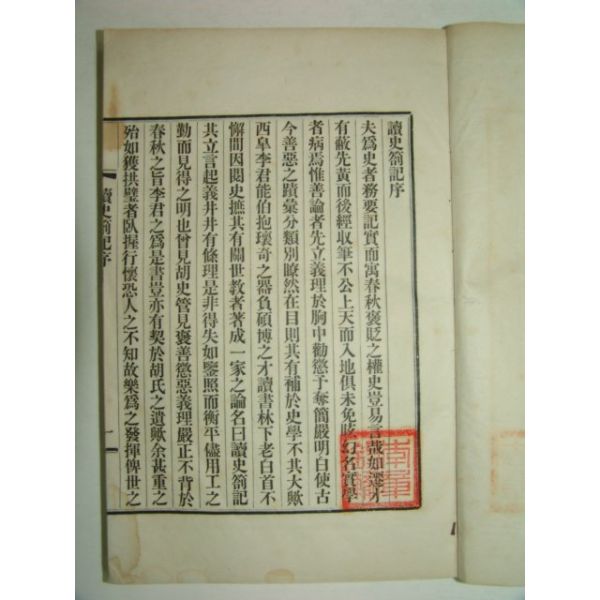 讀史劄記序
夫爲史者務要記實而寓春秋褒貶之權史豈易言哉如遷才
有蔽先黃而後經収筆不公上天而入地俱未免眩幻名實學
者病焉惟善論者先立義理於胸中勸懲予奪簡嚴明白使古
今善惡之蹟彙分類別瞭然在目則其有補於史學不其大歟
西皐李君能伯抱瓌奇之器負碩博之才讀書林下老白首不
懈間因閱史摭其有關世敎者著成一家之論名曰讀史劄記
其立言起義井井有條理是非得失如鑒照而衡平儘用工之
勤而見得之明也曾見胡史管見褒善懲惡義理嚴正不背於
春秋之旨李君之爲是書豈亦有契於胡氏之遺歟余甚重之
殆如獲拱璧者臥握行懷恐人之不知故樂爲之發揮俾世之
讀史劄記序
一